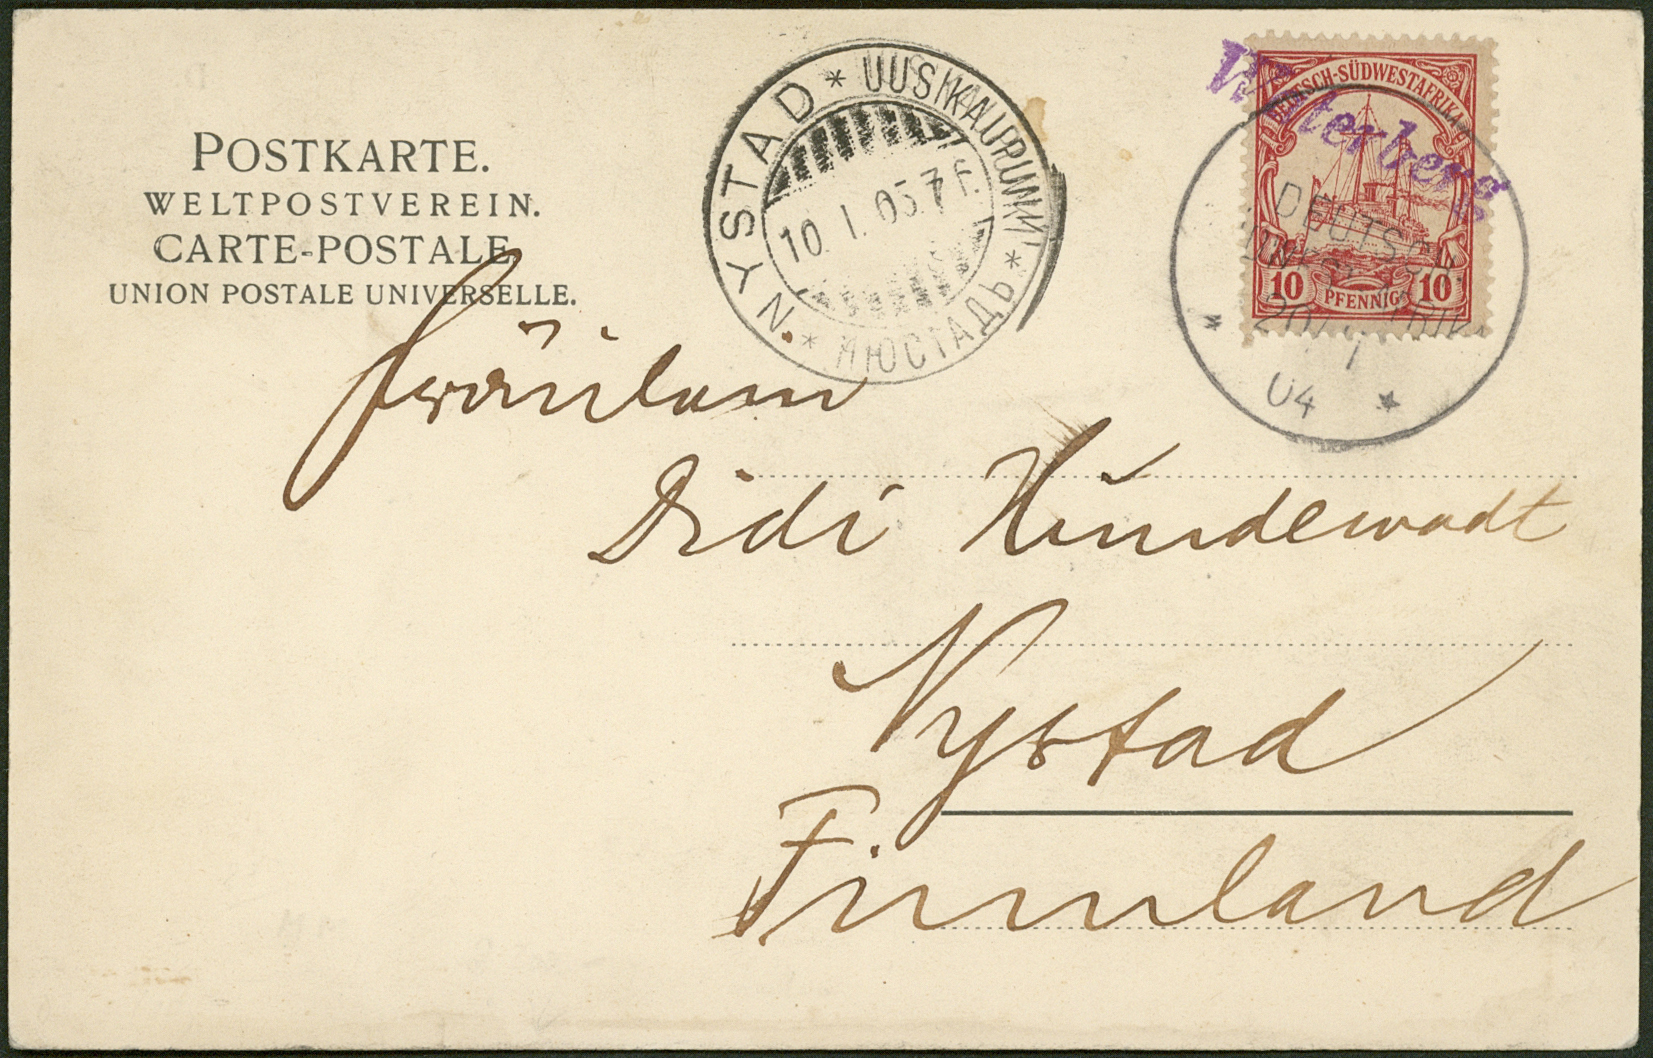 POSTKARTE.
WELTPOSTVEREIN.
CARTE-POSTALE
UNION POSTALE UNIVERSELLE.
NYSTAD * UUSIKAUPUNKI * НЮСТАДЬ *
10. I. 05. 7 f.
Waterberg
DEUTSCH-SÜDWESTAFRIKA
10 PFENNIG 10
DEUTSCH
04
Fräulein
Didi Hundewadt
Nystad
Finnland